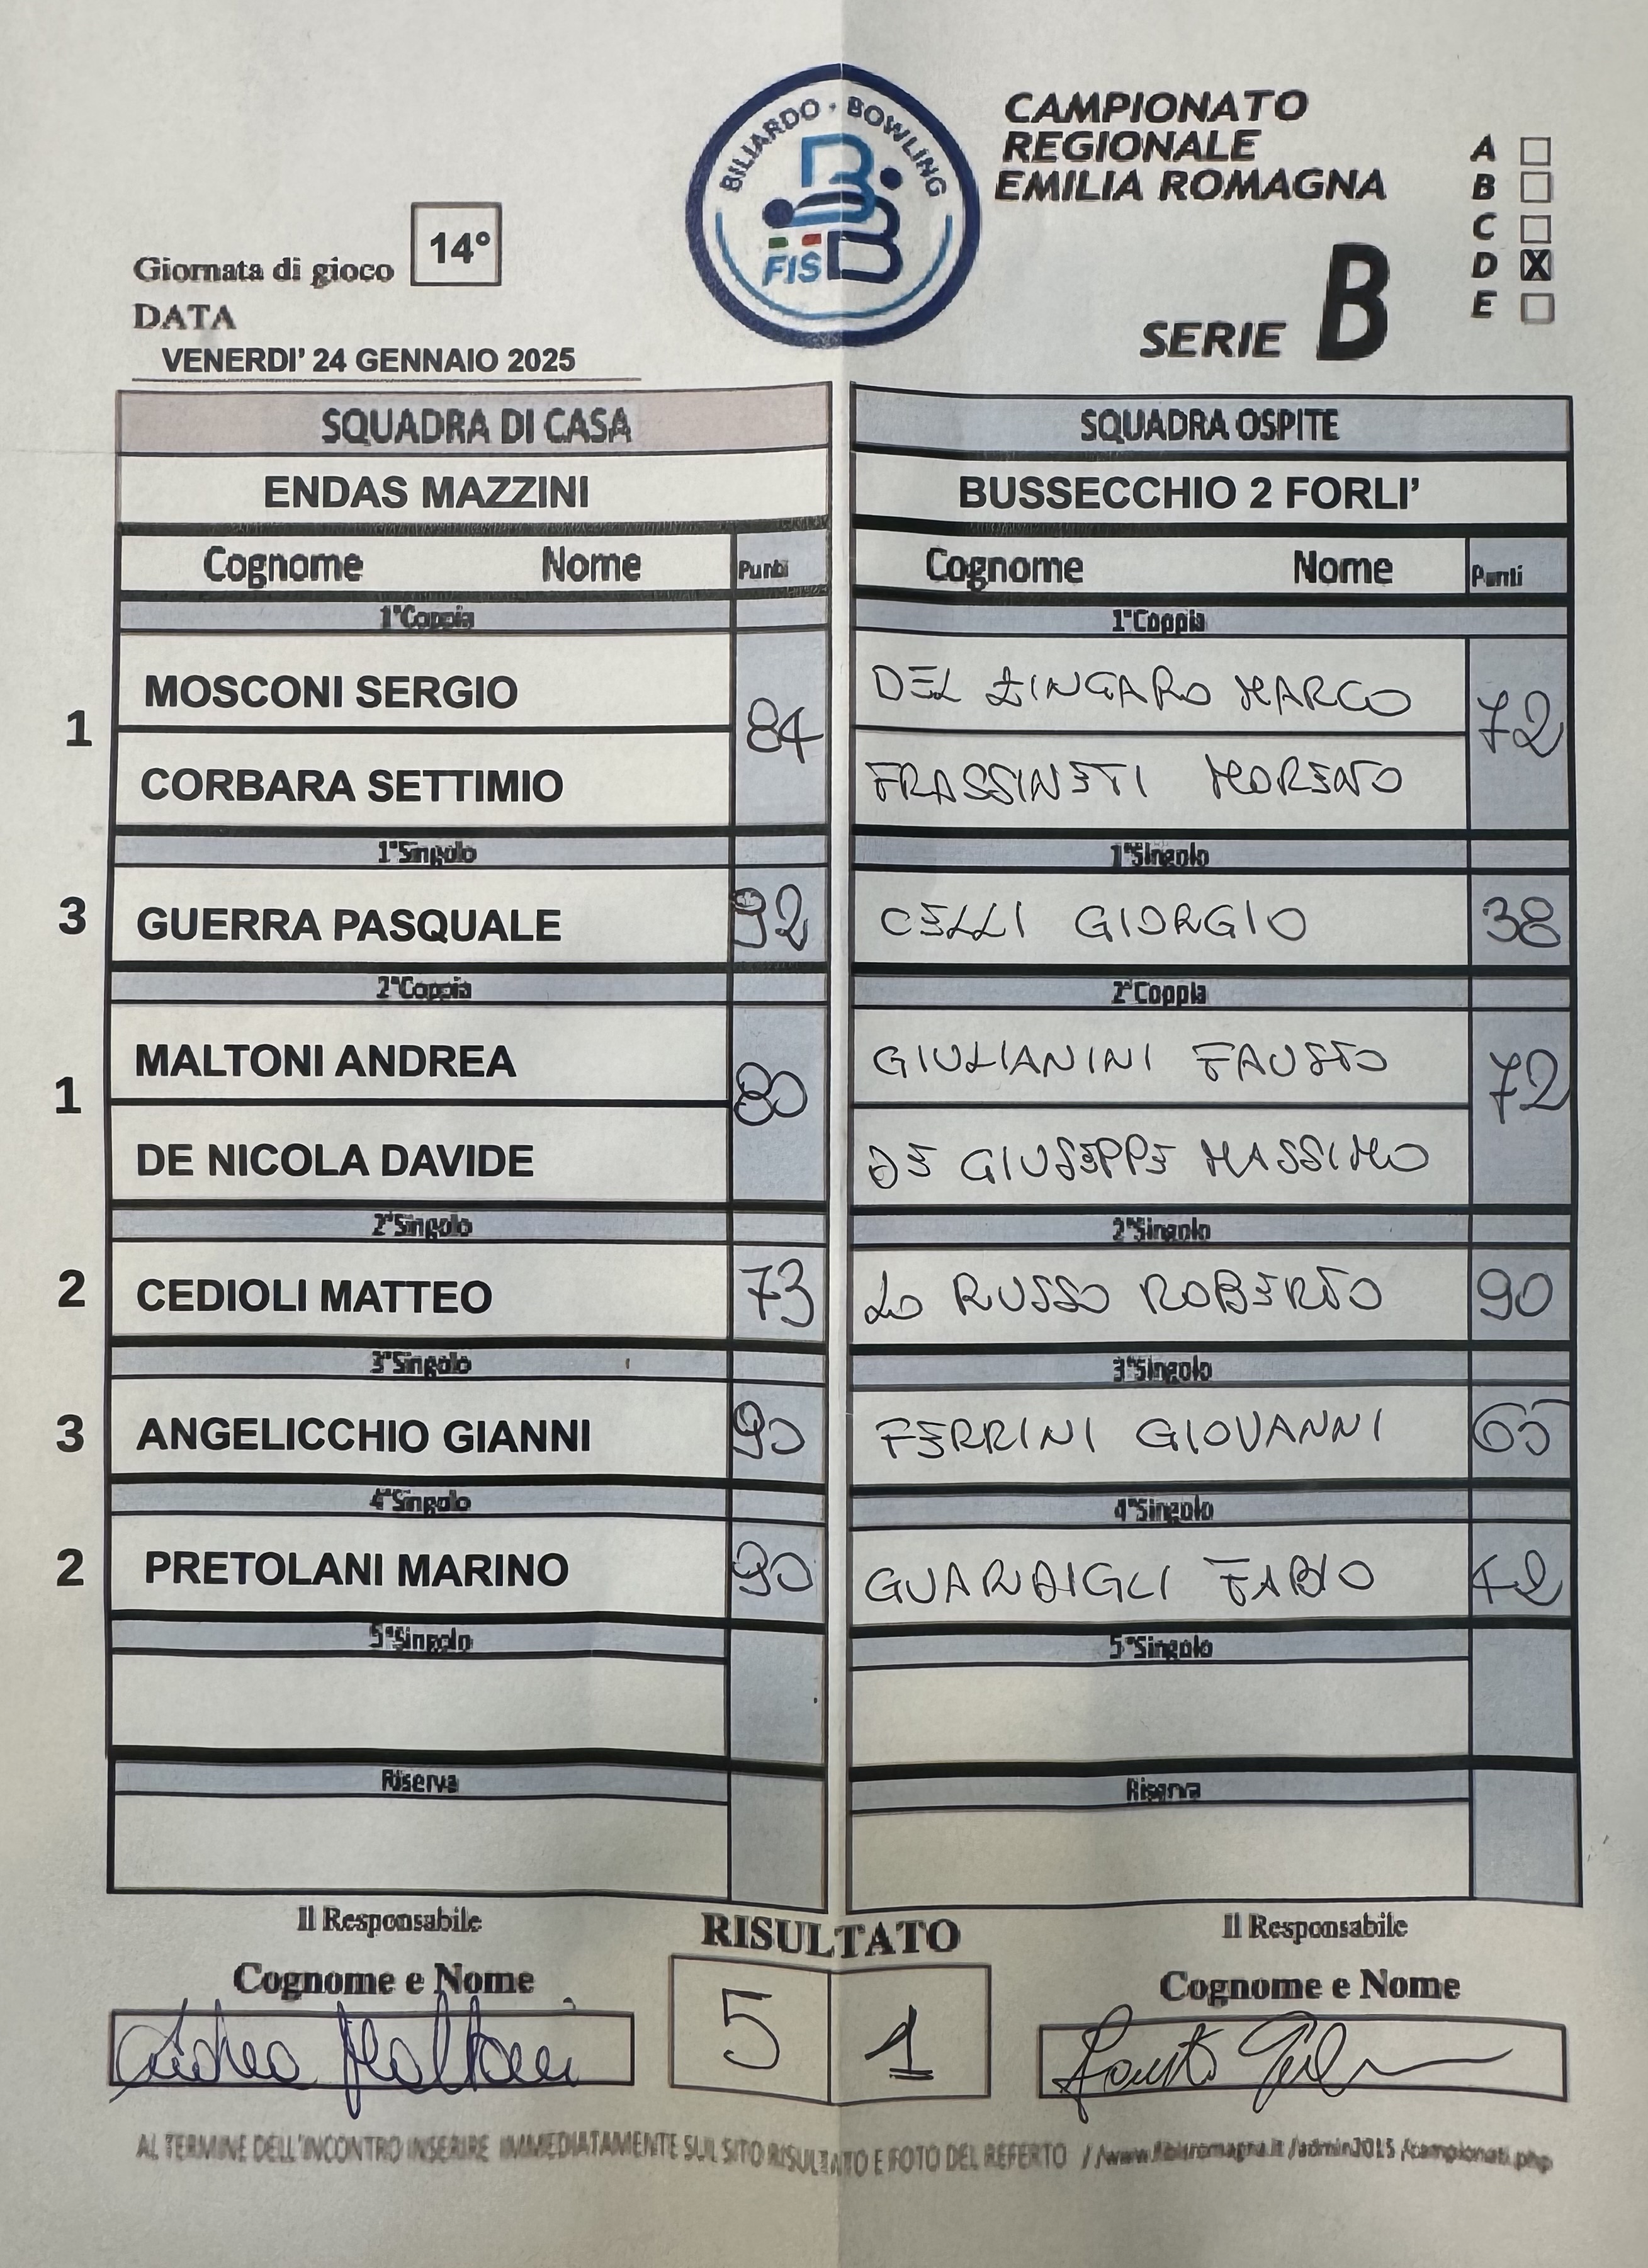 BILIARDO · BOWLING
FISBB
CAMPIONATO
REGIONALE
EMILIA ROMAGNA
SERIE B
A
B
C
D X
E
Giornata di gioco 14°
DATA
VENERDI’ 24 GENNAIO 2025
SQUADRA DI CASA
ENDAS MAZZINI
Cognome Nome Punti
1°Coppia
1 MOSCONI SERGIO 84
CORBARA SETTIMIO
1°Singolo
3 GUERRA PASQUALE 92
2°Coppia
1 MALTONI ANDREA 80
DE NICOLA DAVIDE
2°Singolo
2 CEDIOLI MATTEO 73
3°Singolo
3 ANGELICCHIO GIANNI 90
4°Singolo
2 PRETOLANI MARINO 90
5°Singolo
Riserva
SQUADRA OSPITE
BUSSECCHIO 2 FORLI’
Cognome Nome Punti
1°Coppia
DEL ZINGARO MARCO 72
FRASSINETI MORENO
1°Singolo
CELLI GIORGIO 38
2°Coppia
GIULIANINI FAUSTO 72
DE GIUSEPPE MASSIMO
2°Singolo
LO RUSSO ROBERTO 90
3°Singolo
FERRINI GIOVANNI 65
4°Singolo
GUARDIGLI FABIO 42
5°Singolo
Riserva
Il Responsabile
Cognome e Nome
Andrea Maltoni
RISULTATO
5 1
Il Responsabile
Cognome e Nome
Fausto
AL TERMINE DELL'INCONTRO INSERIRE IMMEDIATAMENTE SUL SITO RISULTATO E FOTO DEL REFERTO